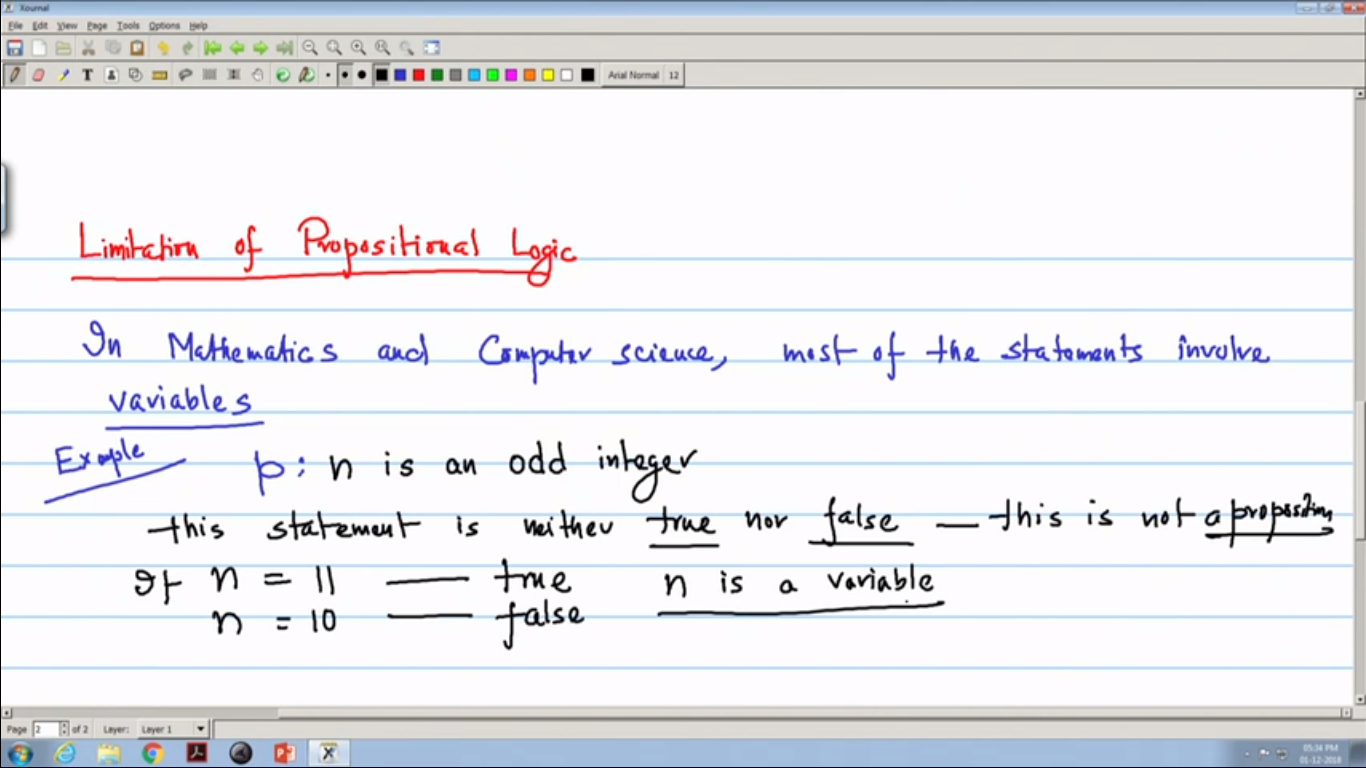 Xournal
File Edit View Page Tools Options Help
Arial Normal 12
Limitation of Propositional Logic
In Mathematics and Computer science, most of the statements involve
variables
Example p: n is an odd integer
this statement is neither true nor false — this is not a proposition
If n = 11 — true n is a variable
n = 10 — false
Page 2 of 2 Layer: Layer 1
05:34 PM
01-12-2018